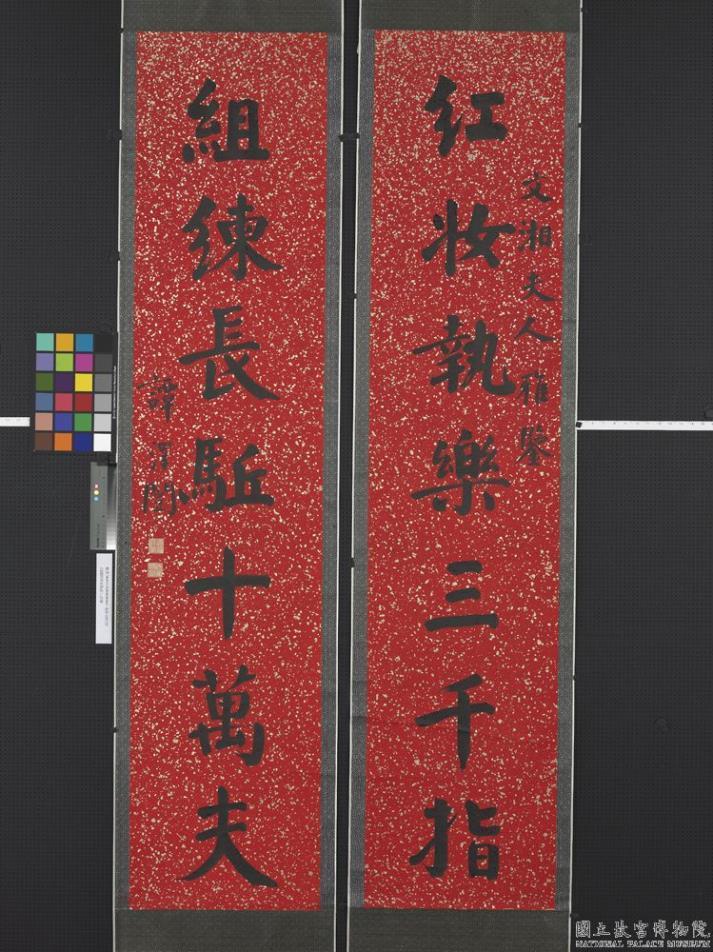 文湘夫人雅鑒
紅妝執樂三千指
組練長駈十萬夫
譚澤闓
國立故宮博物院
NATIONAL PALACE MUSEUM